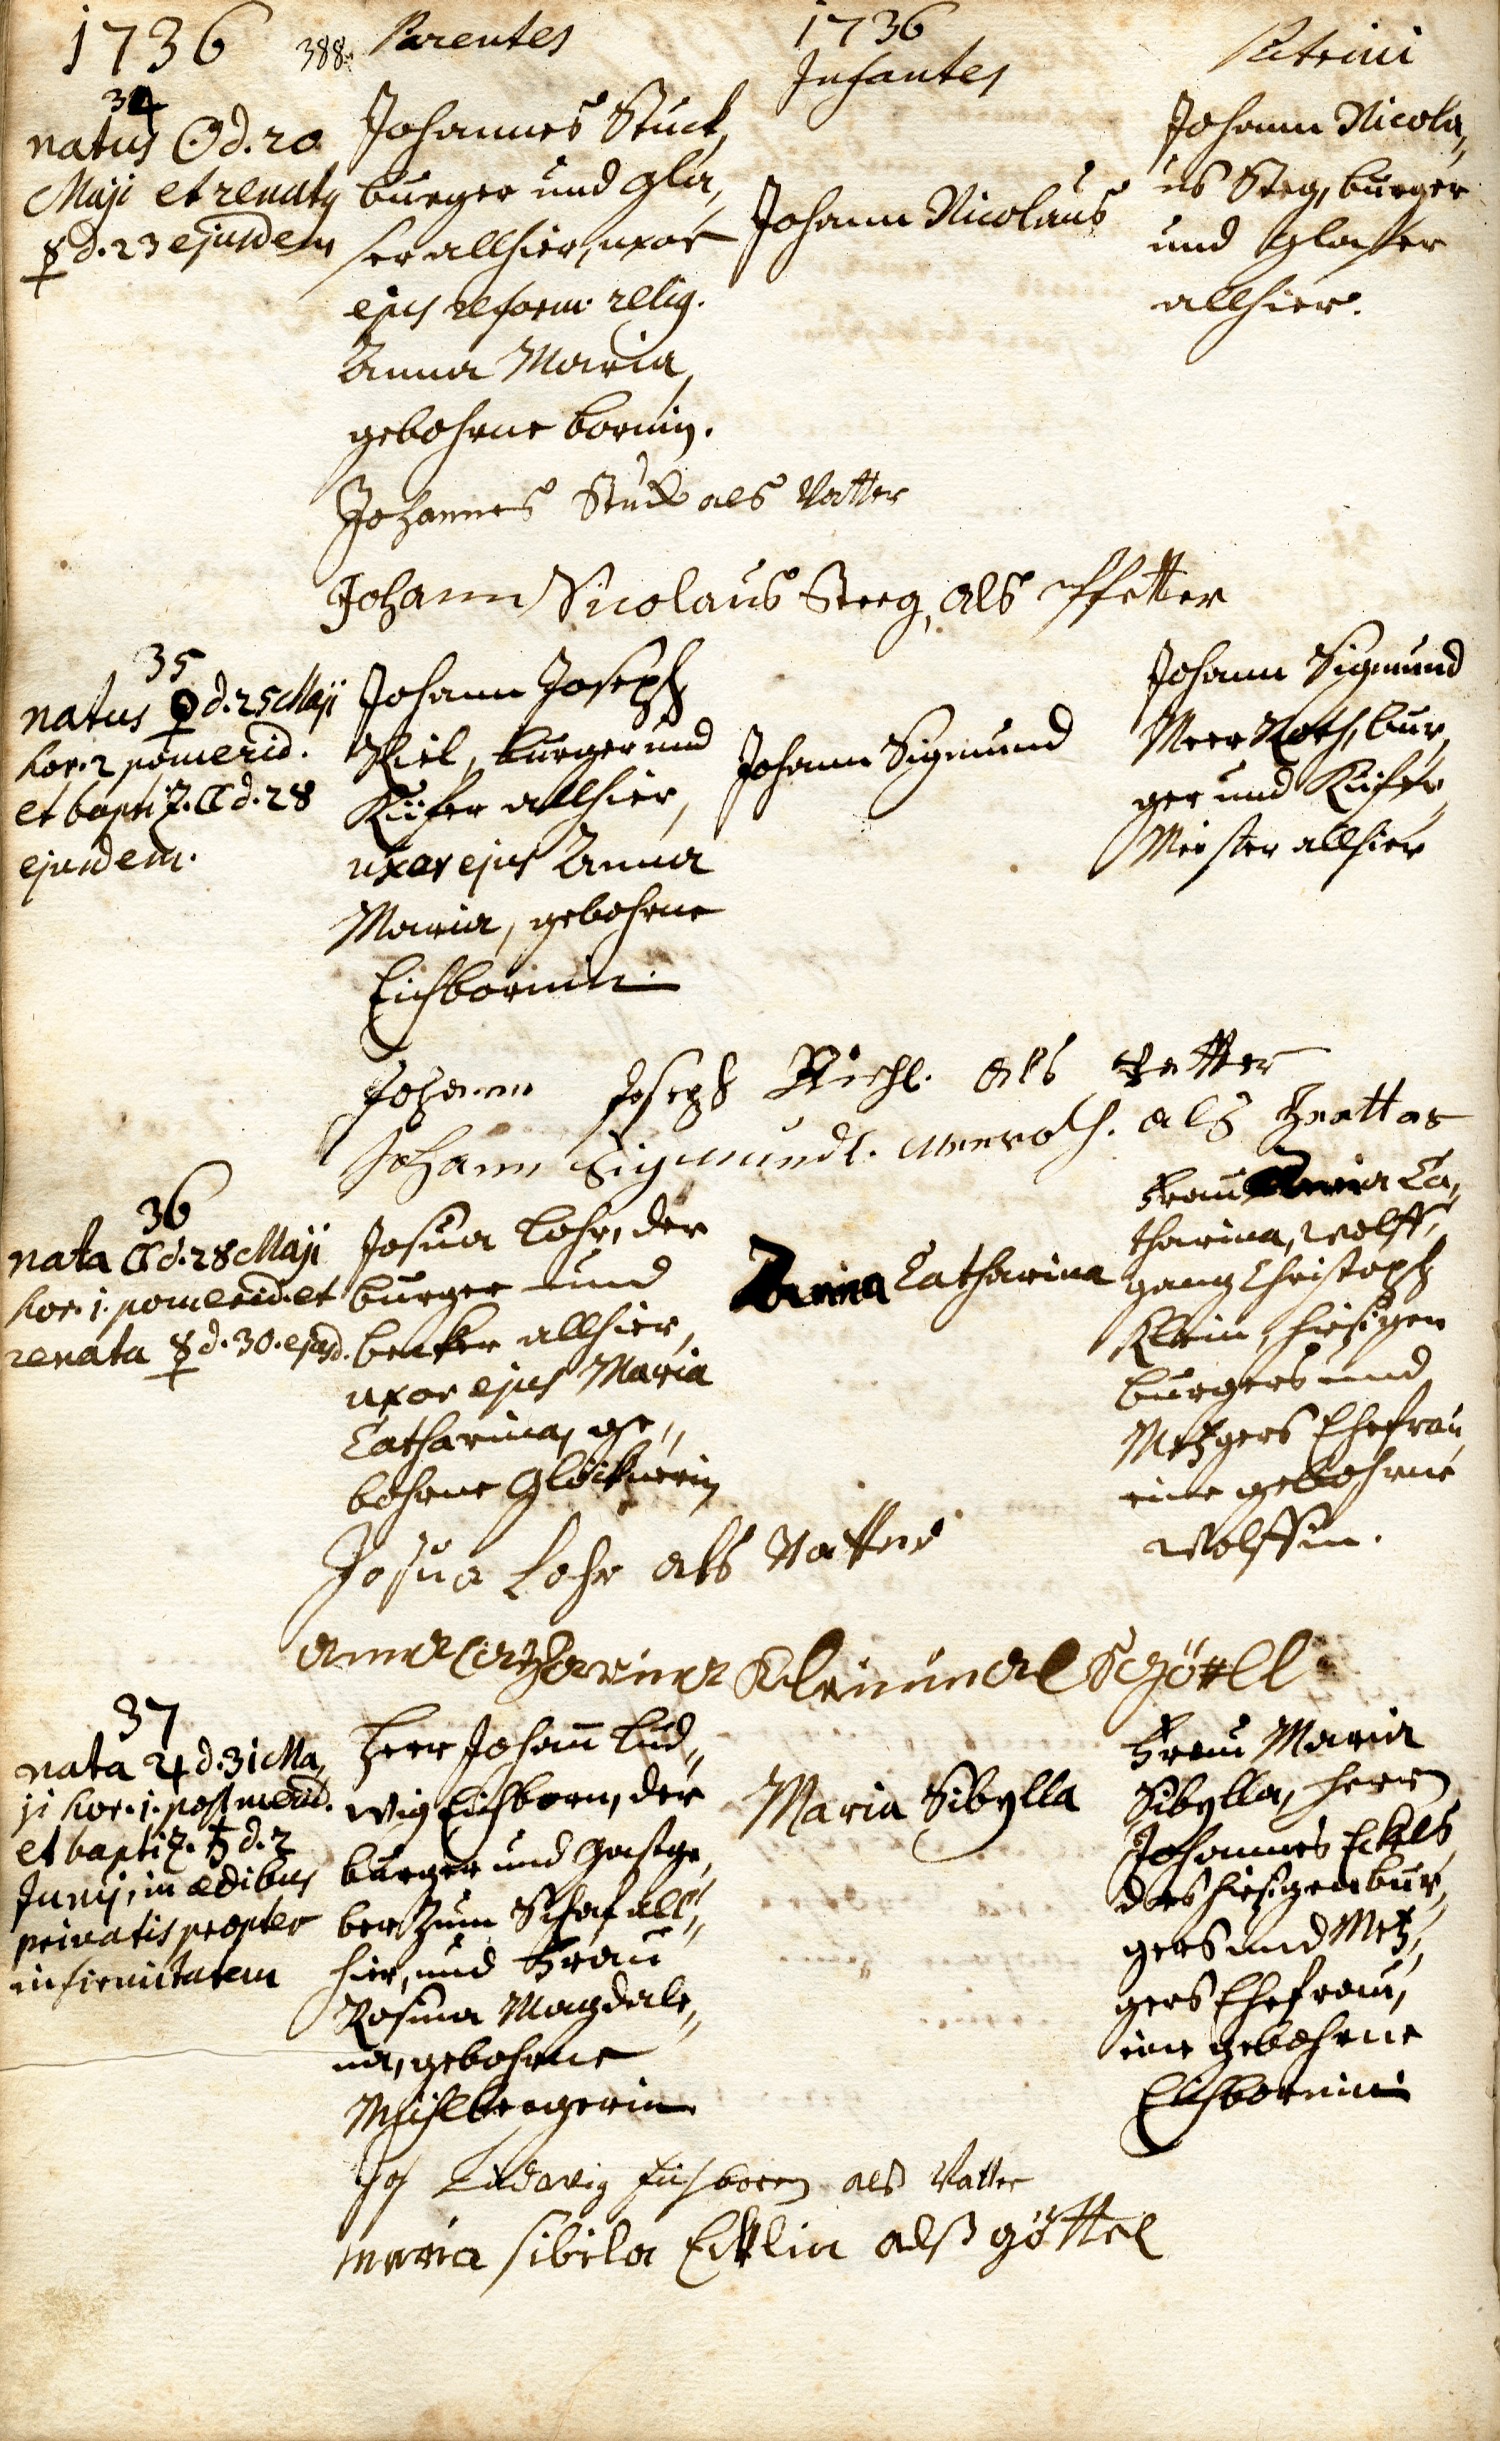 1736
388.
Parentes
1736
Infantes
Patrini
34
natus ☉ d. 20
Maji et renatꝰ
☿ d. 23 ejusdem
Johannes Stuck,
burger und gla„
ser allhier, uxor
ejus reform. relig.
Anna Maria,
gebohrne Bornin.
Johann Nicolaus
Johann Nicola„
us Steg, burger
und glaser
allhier.
Johannes Stuck als Vatter
Johann Nicolaus Steeg, als Pfetter
35
natus ♀ d. 25 Maji
hor. 2 pomerid.
et baptiz. ☾ d. 28
ejusdem.
Johann Joseph
Riel, burger und
Küfer allhier,
uxor ejus Anna
Maria, gebohrne
Eichbornin.
Johann Sigmund
Johann Sigmund
Meer Roth, bur„
ger und Küfer„
Meister allhier
Johann Joseph Riehl. als Vatter
Johann Sigmundt. Meeroth. als
36
nata ☾ d. 28 Maji
hor. 1. pomerid. et
renata ☿ d. 30. ejusd.
Josua Lohr, der
burger und
becker allhier,
uxor ejus Maria
Catharina, ge„
bohrne Glöcknerin
Anna Catharina
Frau Anna Ca„
tharina, Wolff„
gang Christoph
Klein, hiesigen
burgers und
Metzgers Ehefrau
eine gebohrne
Wolffin.
Josua Lohr als Vatter
anna Catharina Kleinin als göttell
37
nata ♃ d. 31 Ma„
ji hor. 1. post merid.
et baptiz. ♄ d. 2
Junij, in ædibus
privatis propter
infirmitatem
Herr Johann Lud„
wig Eichborn, der
burger und Gastge„
ber zum Schaf all„
hier, und Frau
Rosina Magdale„
na, gebohrne
Mühlbergerin
Maria Sibylla
Frau Maria
Sibylla, Herrn
Johannes Eckels
des hiesigen bur„
gers und Metz„
gers Ehefrau,
eine gebohrne
Eichbornin
Joh Ludwig Eichborn als Vatter
maria sibila Ecklin alß göttel